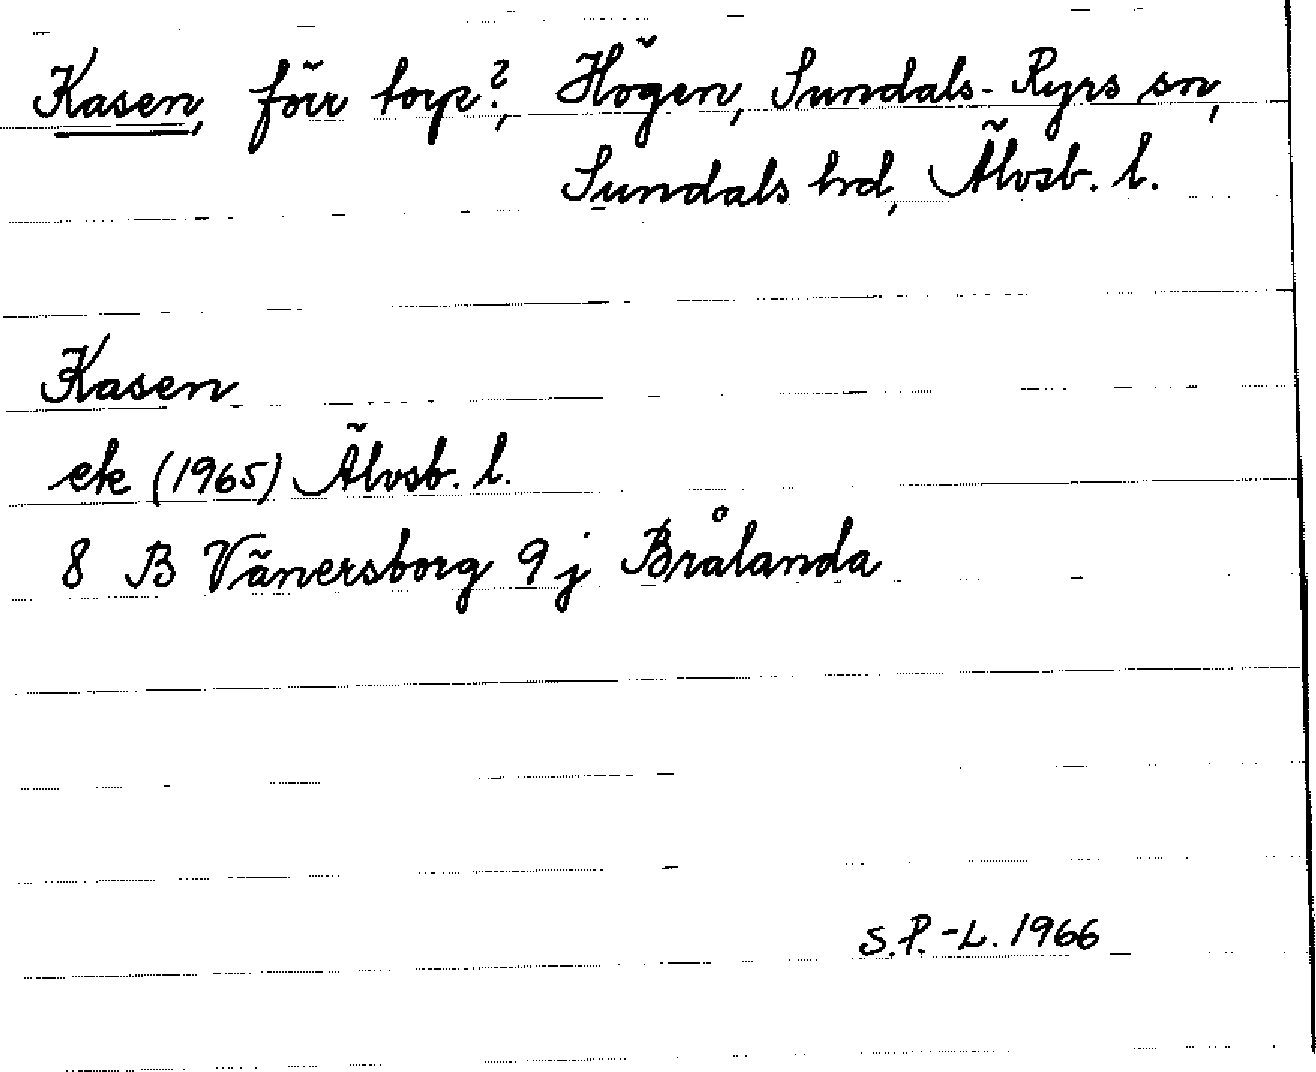 Kasen, förr torp?, Högen, Sundals-Ryrs sn,
Sundals hd, Älvsb. l.
Kasen
ek (1965) Älvsb. l.
8 B Vänersborg 9 j Brålanda
S.P.-L. 1966